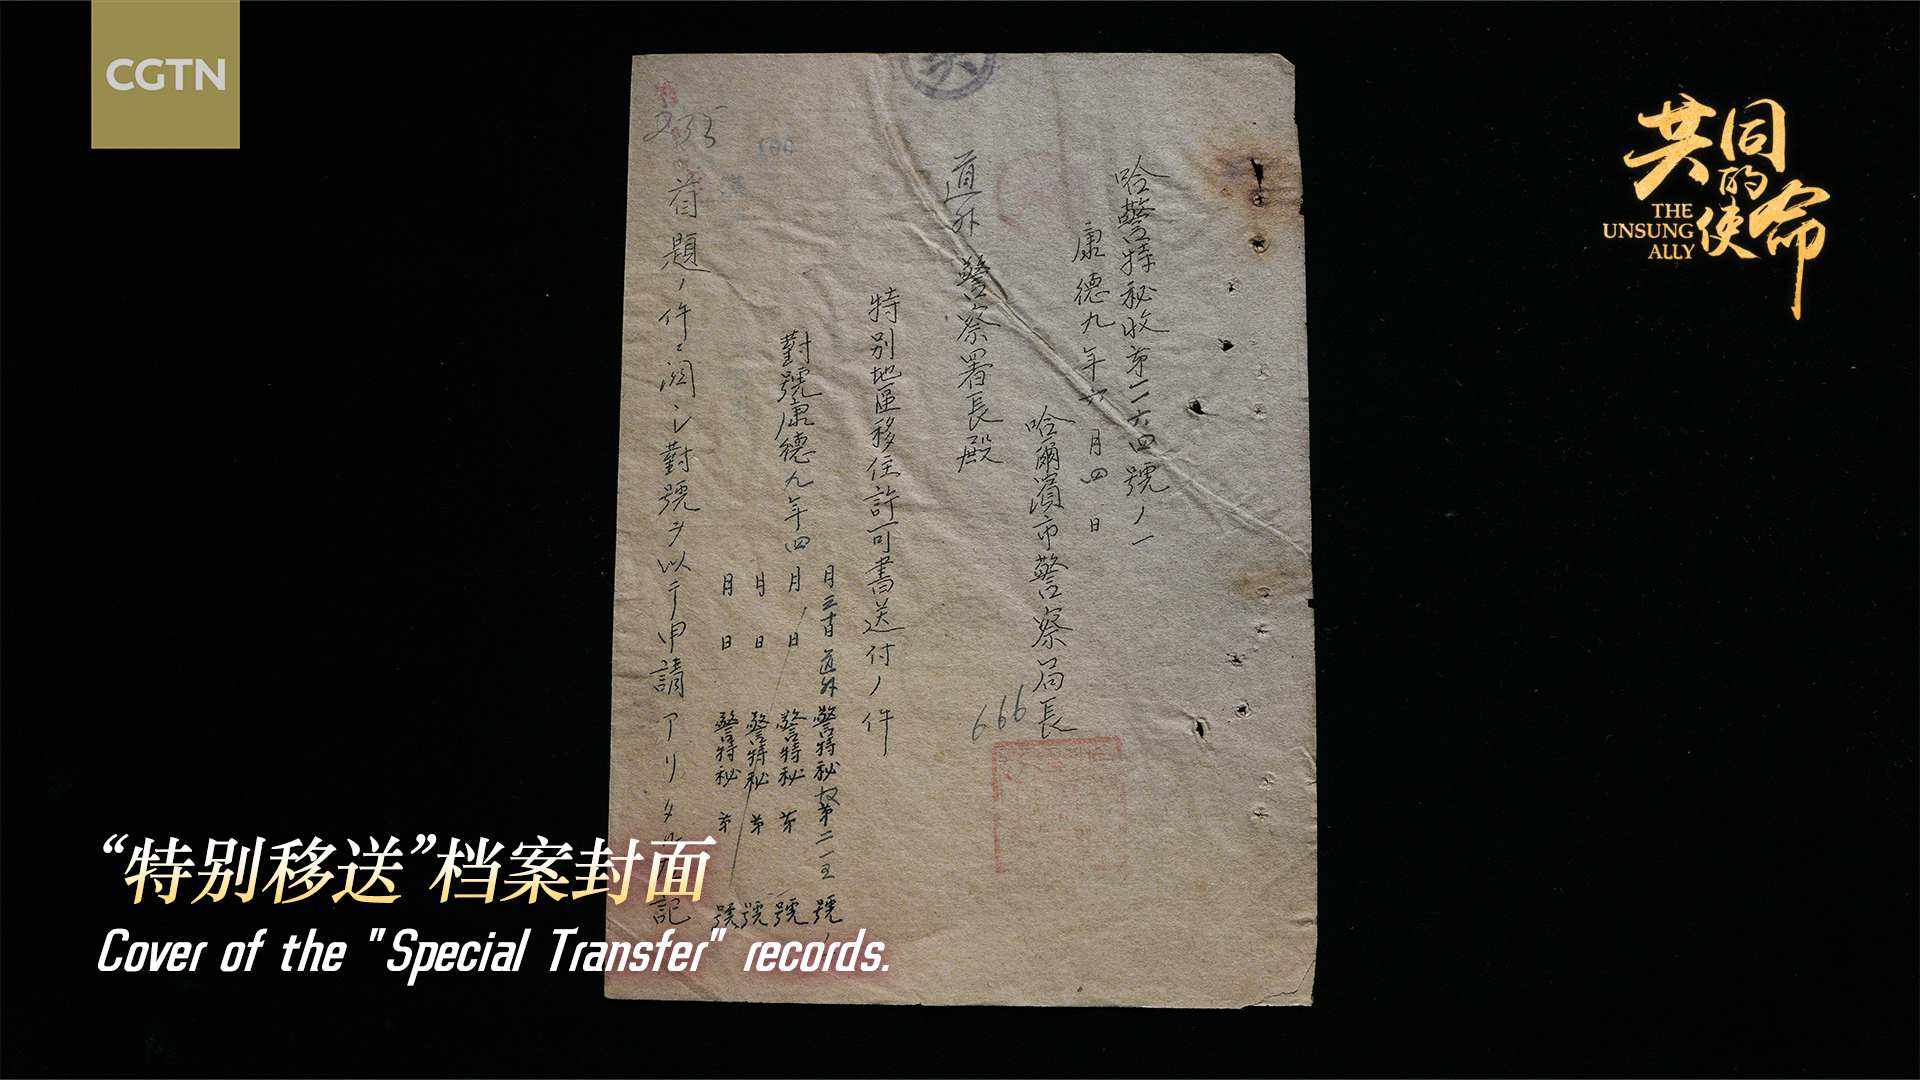 CGTN
共同的使命
THE
UNSUNG
ALLY
哈警特秘收第一一六四號ノ一
康德九年六月四日
哈爾濱市警察局長
666
道外警察署長殿
特別地區移住許可書送付ノ件
對號康德九年四月三十日道外警特秘收第二一五號
月日警特秘第號
月日警特秘第號
月日警特秘第號
100
首題ノ件ニ関シ對號ヲ以テ申請アリタル
記
“特别移送”档案封面
Cover of the "Special Transfer" records.